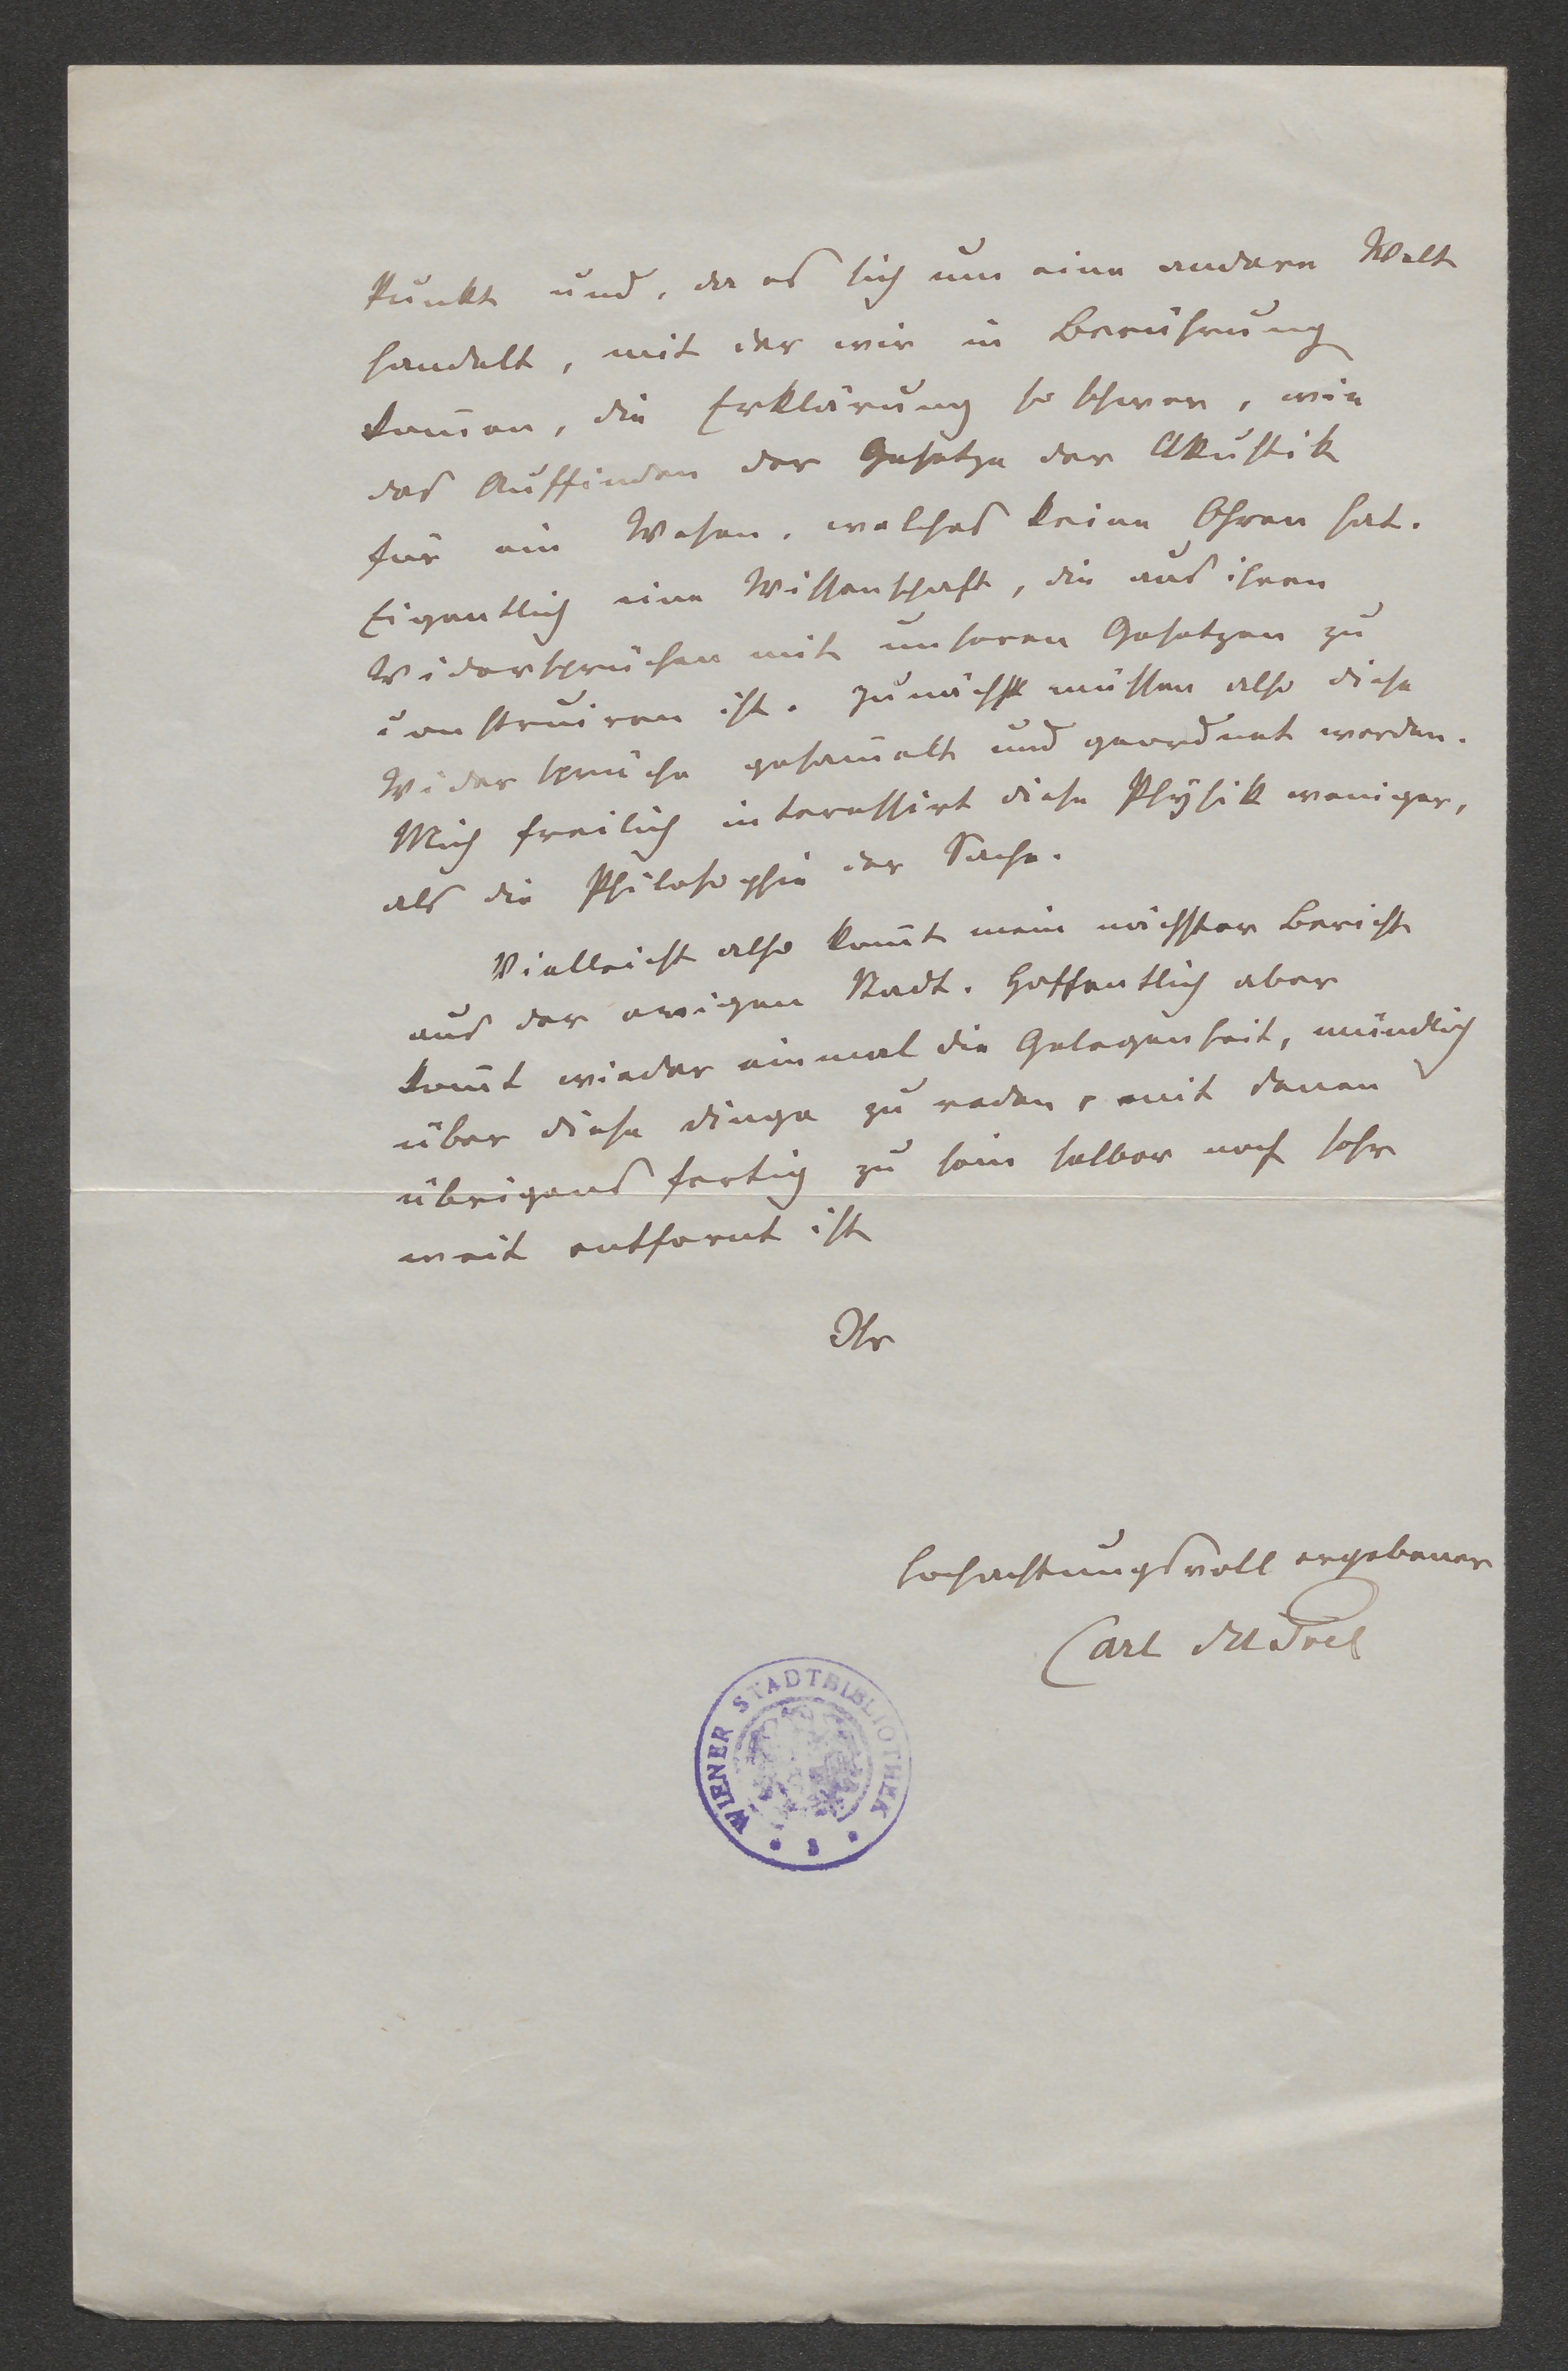 Punkt und, da es sich um eine andere Welt
handelt, mit der wir in Berührung
kom̅en, die Erklärung so schwer, wie
das Auffinden der Gesetze der Akustik
für ein Wesen, welches keine Ohren hat.
Eigentlich eine Wissenschaft, die aus ihren
Widersprüchen mit unseren Gesetzen zu
construiren ist. Zunächst müssen also diese
Widersprüche gesam̅elt und geordnet werden.
Mich freilich interessirt diese Physik weniger,
als die Philosophie der Sache.
Vielleicht also kom̅t mein nächster Bericht
aus der ewigen Stadt. Hoffentlich aber
kom̅t wieder einmal die Gelegenheit, mündlich
über diese Dinge zu reden, mit denen
übrigens fertig zu sein selber noch sehr
weit entfernt ist
Ihr
hochachtungsvoll ergebener
Carl du Prel
WIENER STADTBIBLIOTHEK